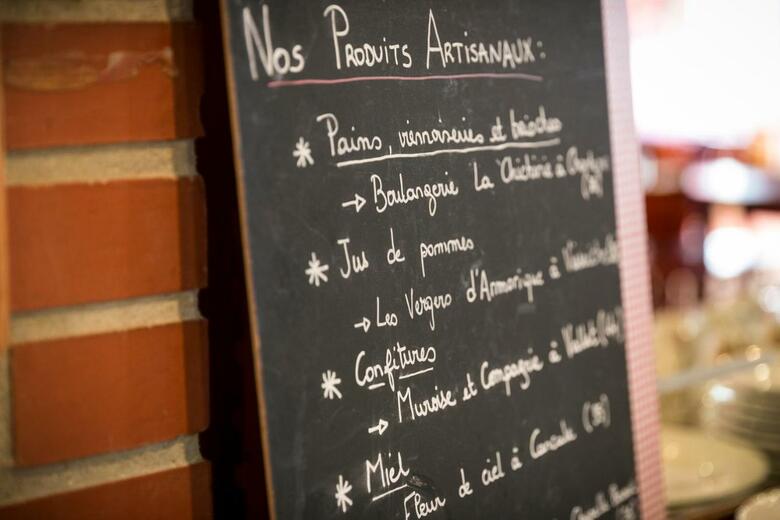 Nos Produits Artisanaux:
* Pains, viennoiseries et brioches
→ Boulangerie La
* Jus de pommes
→ Les Vergers d'Armorique à
* Confitures
→ Muroise et Compagnie à Vallet (44)
* Miel
Fleur de ciel à Cancale (35)